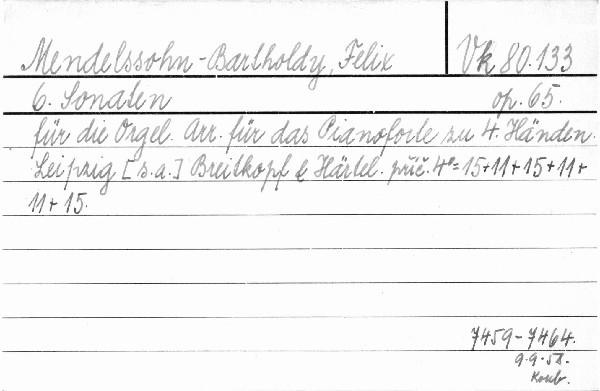 Mendelssohn-Bartholdy, Felix Vk 80.133
6. Sonaten op. 65.
für die Orgel. Arr. für das Pianoforte zu 4. Händen.
Leipzig [s.a.] Breitkopf & Härtel. příč. 4°=15+11+15+11+
11+15.
7459-7464.
9.9.58.
Koub.